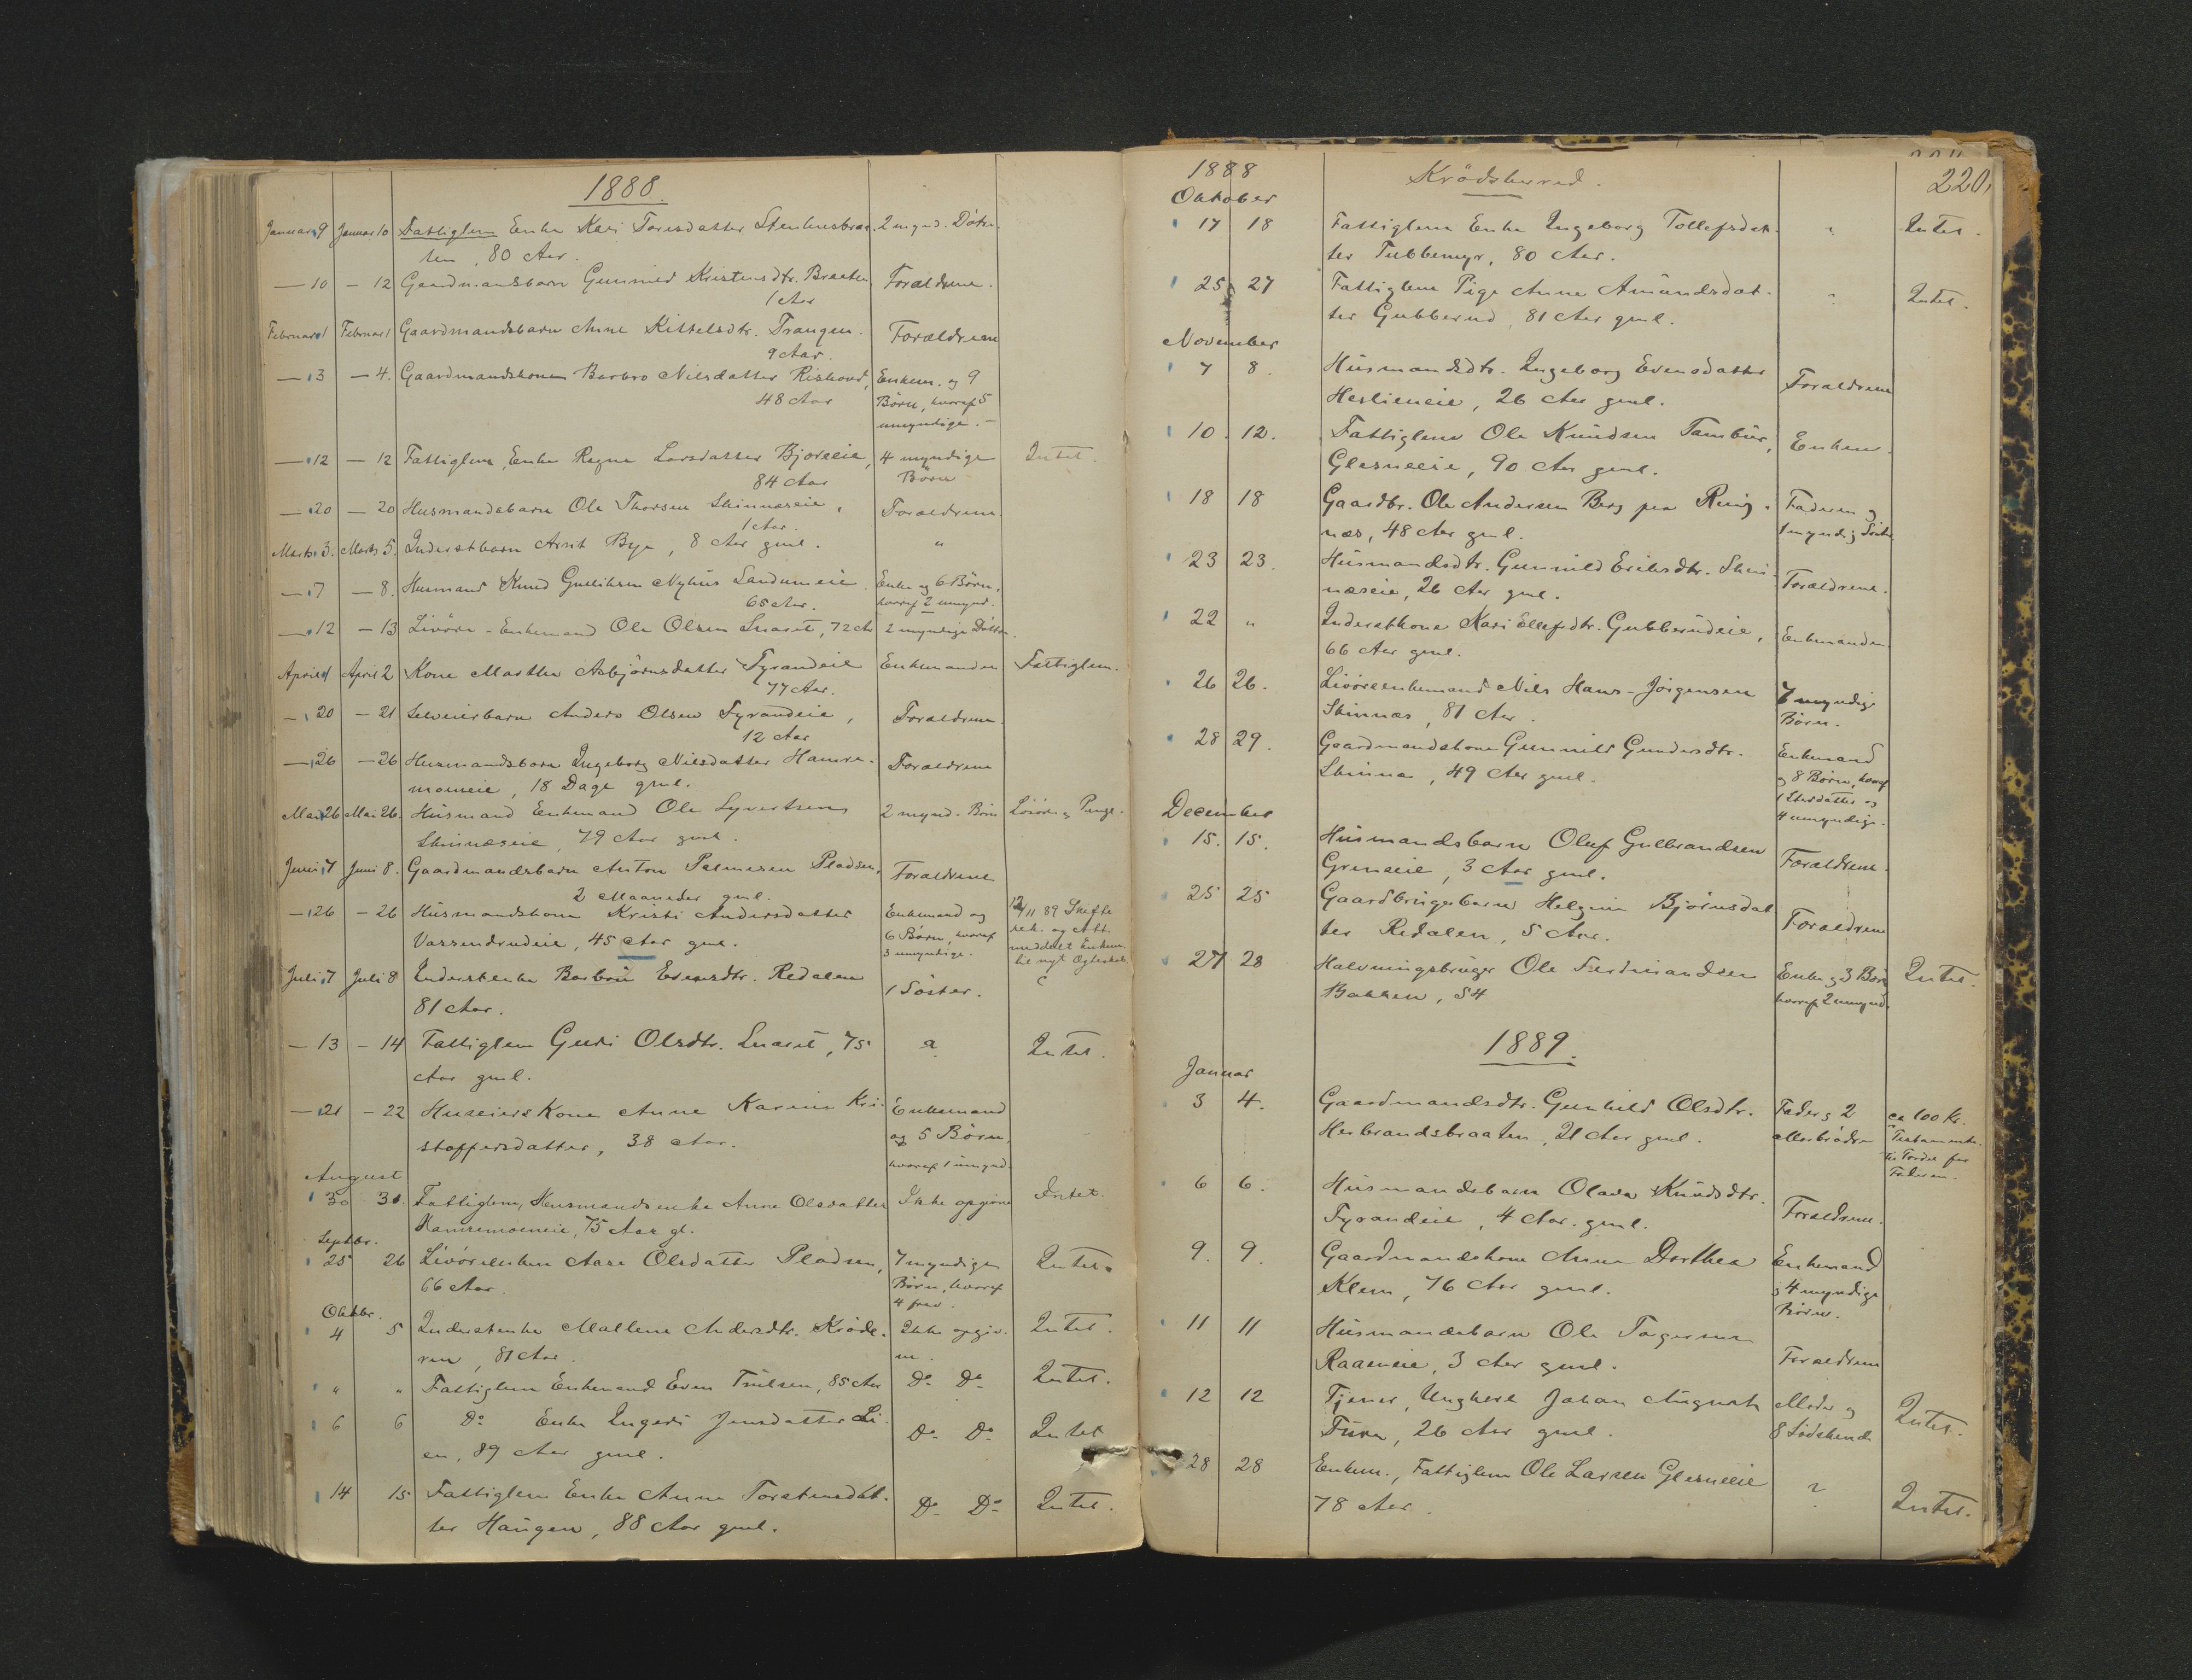 1888.
Januar 9 Januar 10 Fattiglem Enke Kari Toresdatter Stenhusbraa- 2 mynd. Døtre.
ten, 80 Aar.
— 10 — 12 Gaardmandsbarn Gunnild Kristensdtr. Braaten Forældrene.
1 Aar
Februar 1 Februar 1 Gaardmandsbarn Anne Kittelsdtr. Trangen. Forældrene
9 Aar.
— 3 — 4. Gaardmandskonen Barbro Nilsdatter Rishovd, Enkem. og 9
48 Aar Børn, hvoraf 5
umyndige. —
— 12 — 12 Fattiglem, Enke Regne Larsdatter Bjøreeie, 4 myndige Intet.
84 Aar Børn
— 20 — 20 Husmandsbarn Ole Thorsen Skinnæseie, Forældrene
1 Aar.
Marts 3. Marts 5. Inderstbarn Arnt Bye, 8 Aar gml. "
— 7 — 8. Husmand Knud Gulliksen Nyhus Sandumeie Enke og 6 Børn,
65 Aar. hvoraf 2 umynd.
— 12 — 13 Livøre-Enkemand Ole Olsen Snaret, 72 Aar 2 myndige Døttre.
April 1 April 2 Kone Marthe Asbjørnsdatter Fyrandeie Enkemanden Fattiglem.
77 Aar.
— 20 — 21 Selveierbarn Anders Olsen Fyrandeie, Forældrene
12 Aar
— 26 — 26 Husmandsbarn Ingeborg Nilsdatter Hamre- Forældrene
moeneie, 18 Dage gml.
Mai 26 Mai 26. Husmand Enkemand Ole Syvertsen 2 mynd. Børn Løsøre og Penge.
Skinnæseie, 79 Aar gml.
Juni 7 Juni 8. Gaardmandsbarn Anton Palmesen Pladsen, Forældrene
2 Maaneder gml.
— 26 — 26 Husmandskone Kristi Andersdatter Enkemand og 12/11 89 Skifte
Vassendrudeie, 45 Aar gml. 6 Børn, hvoraf rek. og Att.
3 umyndige. meddelt Enkem.
til nyt Ægteskab.
Juli 7 Juli 8 Inderstenke Barbro Evensdtr. Redalen 1 Søster.
81 Aar.
— 13 — 14 Fattiglem Guri Olsdtr. Snaret, 75 Intet.
Aar gml.
— 21 — 22 Huseiers Kone Anne Karine Kri- Enkemand
stoffersdatter, 38 Aar. og 5 Børn,
hvoraf 1 umynd.
August
30 31. Fattiglem, Husmandsenke Anne Olsdatter Ikke opgivne Intet.
Hamremoeneie, 75 Aar gl.
Septbr.
25 26 Livøreenken Aase Olsdatter Pladsen, 7 myndige Intet.
66 Aar. Børn, hvoraf
4 frav.
Oktbr.
4 5 Inderstenke Mallene Andersdtr. Krøde- Ikke opgiv- Intet.
ren, 81 Aar. ne.
" " Fattiglem Enkemand Even Truelsen, 85 Aar Do Do Intet.
6 6 Do Enke Ingeri Jensdatter Li- Do Do Intet
en, 89 Aar gml.
14 15 Fattiglem Enke Anne Torstensdat- Do Do Intet.
ter Haugen, 88 Aar gml.
1888 Krødsherred. 220,
Oktober
17 18 Fattiglem Enke Ingeborg Tollefsdat- ? Intet.
ter Tubbemyr, 80 Aar.
25 27 Fattiglem Pige Anne Amundsdat- Intet.
ter Gubberud, 81 Aar gml.
November
7 8. Husmandsdtr. Ingeborg Evensdatter Forældrene
Herlieneie, 26 Aar gml.
10. 12. Fattiglem Ole Knudsen Tambur, Enken.
Glesneeie, 90 Aar gml.
18 18 Gaardbr. Ole Andersen Berg paa Ring- Faderen og
næs, 48 Aar gml. 1 myndig Søster
23 23. Husmandsdtr. Gunnild Eriksdtr. Skin- Forældrene.
næseie, 26 Aar gml.
22 " Inderstkone Kari Ellefsdtr. Gubberudeie, Enkemanden.
66 Aar gml.
26 26. Livøreenkemand Nils Hans-Jørgensen 7 myndige
Skinnæs, 81 Aar. Børn.
28 29. Gaardmandskone Gunnild Gundersdtr. Enkemand
Skinnæs, 49 Aar gml. og 8 Børn, hvoraf
1 Stedatter og
4 umyndige.
December
15. 15. Husmandsbarn Oluf Gulbrandsen Forældrene.
Greneeie, 3 Aar gml.
25 25 Gaardbrugerbarn Helgine Bjørnsdat- Forældrene
ter Redalen, 5 Aar.
27 28 Halvningsbruger Ole Ferdinandsen Enke og 3 Børn Intet.
Bakken, 54 hvoraf 2 umynd.
1889.
Januar
3 4. Gaardmandsdtr. Gunhild Olsdtr. Fader og 2 ca 100 Kr.
Herbrandsbraaten, 21 Aar gml. Morbrødre Testamente.
til Fordel for
Faderen.
6 6. Husmandsbarn Olava Knudsdtr. Forældrene.
Fyrandeie, 4 Aar. gml.
9. 9. Gaardmandskone Anne Dorthea Enkemand
Klem, 76 Aar gml. og 4 myndige
Børn.
11 11 Husmandsbarn Ole Torgersen
Raaeneie, 3 Aar gml. Forældrene
12 12 Tjener, Ungkarl Johan August Moder og Intet.
Ture, 26 Aar gml. 8 Sødskende
28 28 Enkem., Fattiglem Ole Larsen Glesneeie ? Intet.
78 Aar.